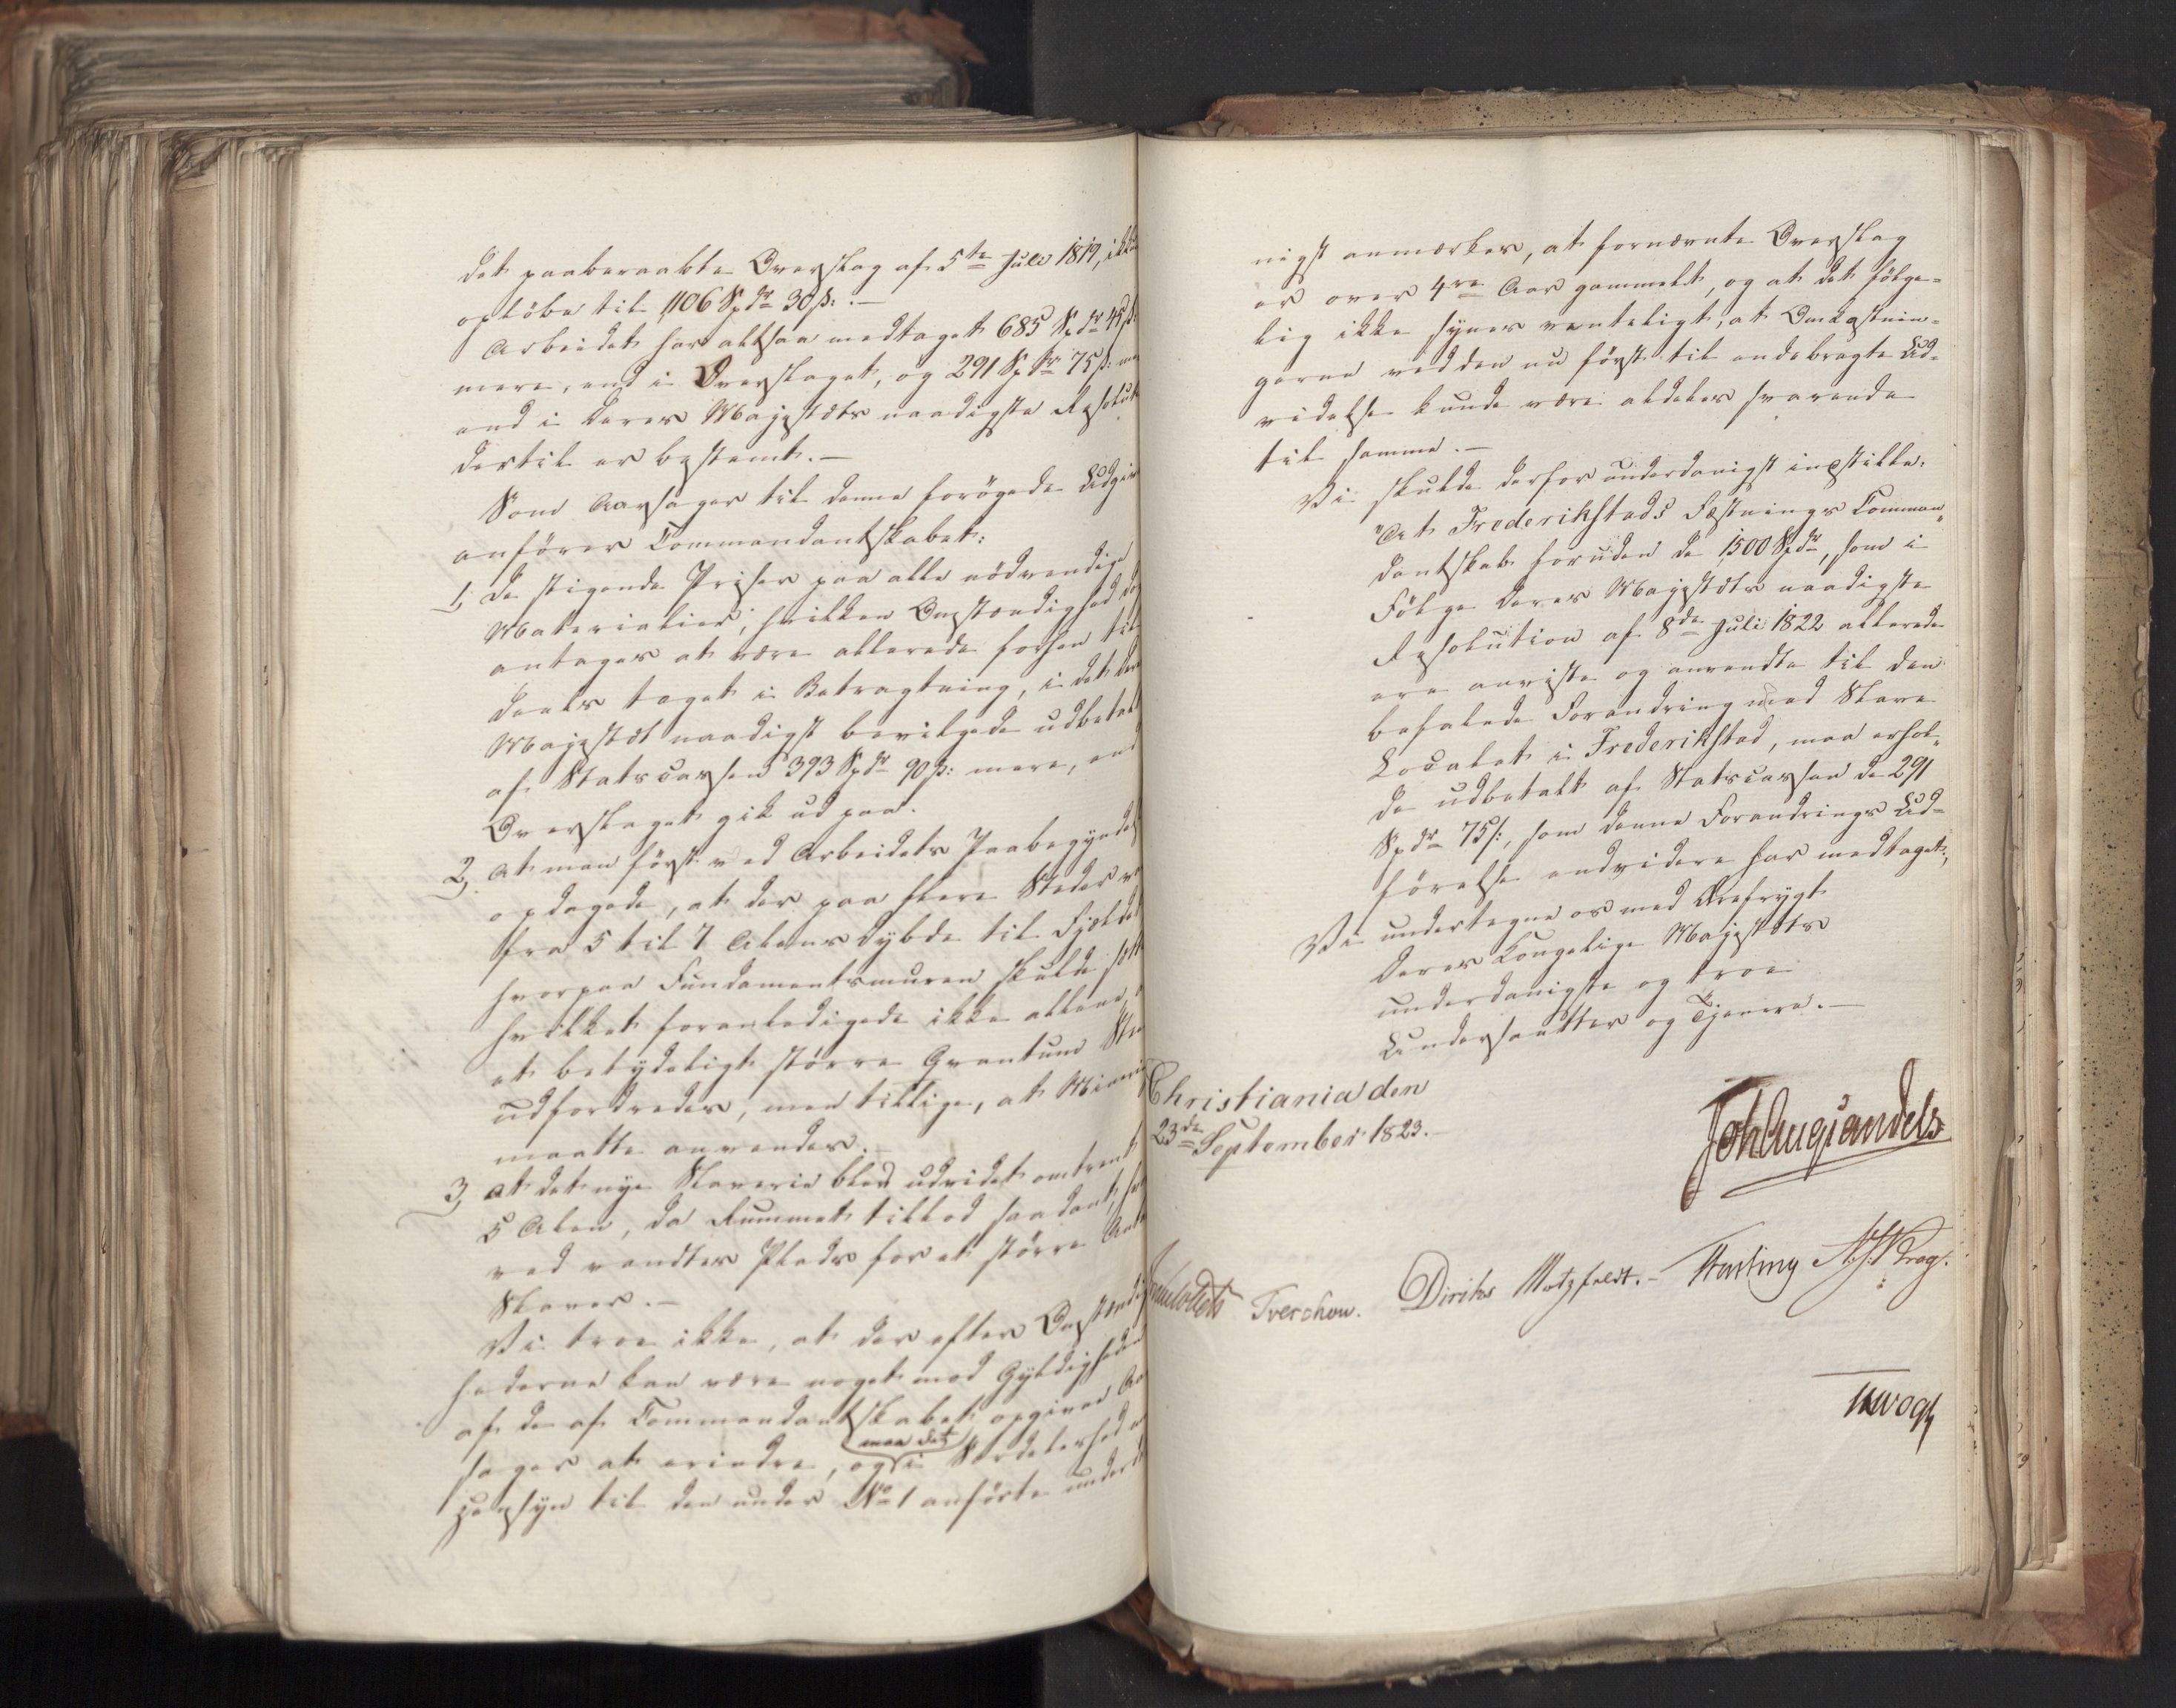 det paaberaabte Overslag af 5te Juli 1819, ikke
opløbe til 1106 Spdr 30 ß: .—
Arbeidet har altsaa medtaget 685 Spdr 45 ß:
mere, end i Overslaget, og 291 Spdr 75 ß:
end i Deres Majestæts naadigste Resolut
dertil er bestemt.—
Som Aarsager til denne forøgede Udgivt
anfører Commandantskabet:
1, De stigende Priser paa alle nødvendige
Materialier; hvilken Omstændighed dog
antages at være allerede forhen til
deels taget i Betragtning, i det Deres
Majestæt naadigst bevilgede udbetalt
af Statscassen 393 Spdr 90 ß: mere, end
Overslaget gik ud paa.
2, At man først ved Arbeidets Paabegyndelse
opdagede, at der paa flere Steder var
fra 5 til 7 Alens Dybde til Fjeldet
hvorpaa Fundamentsmuren skulde sættes
hvilket foranledigede ikke allene, 
et betydeligt større Qvantum Steen
udfordredes, men tillige, at Minering
maatte anvendes.
3, At det nye Slaverie blev udvidet omtrent
5 Alen, da Rummet tillod saadant, hvor
ved vandtes Plads for et større Antal
Slaver.—
Vi troe ikke, at der efter Omstændig
hederne kan være noget mod Gyldigheden
af de af Commandantskabet opgivne Aar
sager at erindre, og maa det i Særdeleshed med
Hensyn til den under No 1 anførte underda
nigst anmærkes, at fornævnte Overslag
er over 4re Aar gammelt, og at det følge=
lig ikke synes venteligt, at Omkostnin=
gerne ved den nu først til endebragte Ud=
videlse kunde være aldeles svarende
til samme.—
Vi skulde derfor underdanigst indstille:
"At Frederikstads Fæstnings Comman„
dantskab foruden de 1500 Spdr, som i
Følge Deres Majestæts naadigste
Resolution af 8de Juli 1822 allerede
ere anviste og anvendte til den
befalede Forandring med Slave
Localet i Frederikstad, maa erhol„
de udbetalt af Statscassen de 291
Spdr 75 ß:, som denne Forandrings Ud=
førelse endvidere har medtaget.„
Vi undertegne os med Ærefrygt
Deres Kongelige Majestæts
underdanigste og troe
Undersaatter og Tjenere.—
Christiania den
23de September 1823.—
Joh Aug Sandels
Sommerhielm Treschow. Diriks Motzfeldt.— Fasting P. H. Krog.
JH Vogt